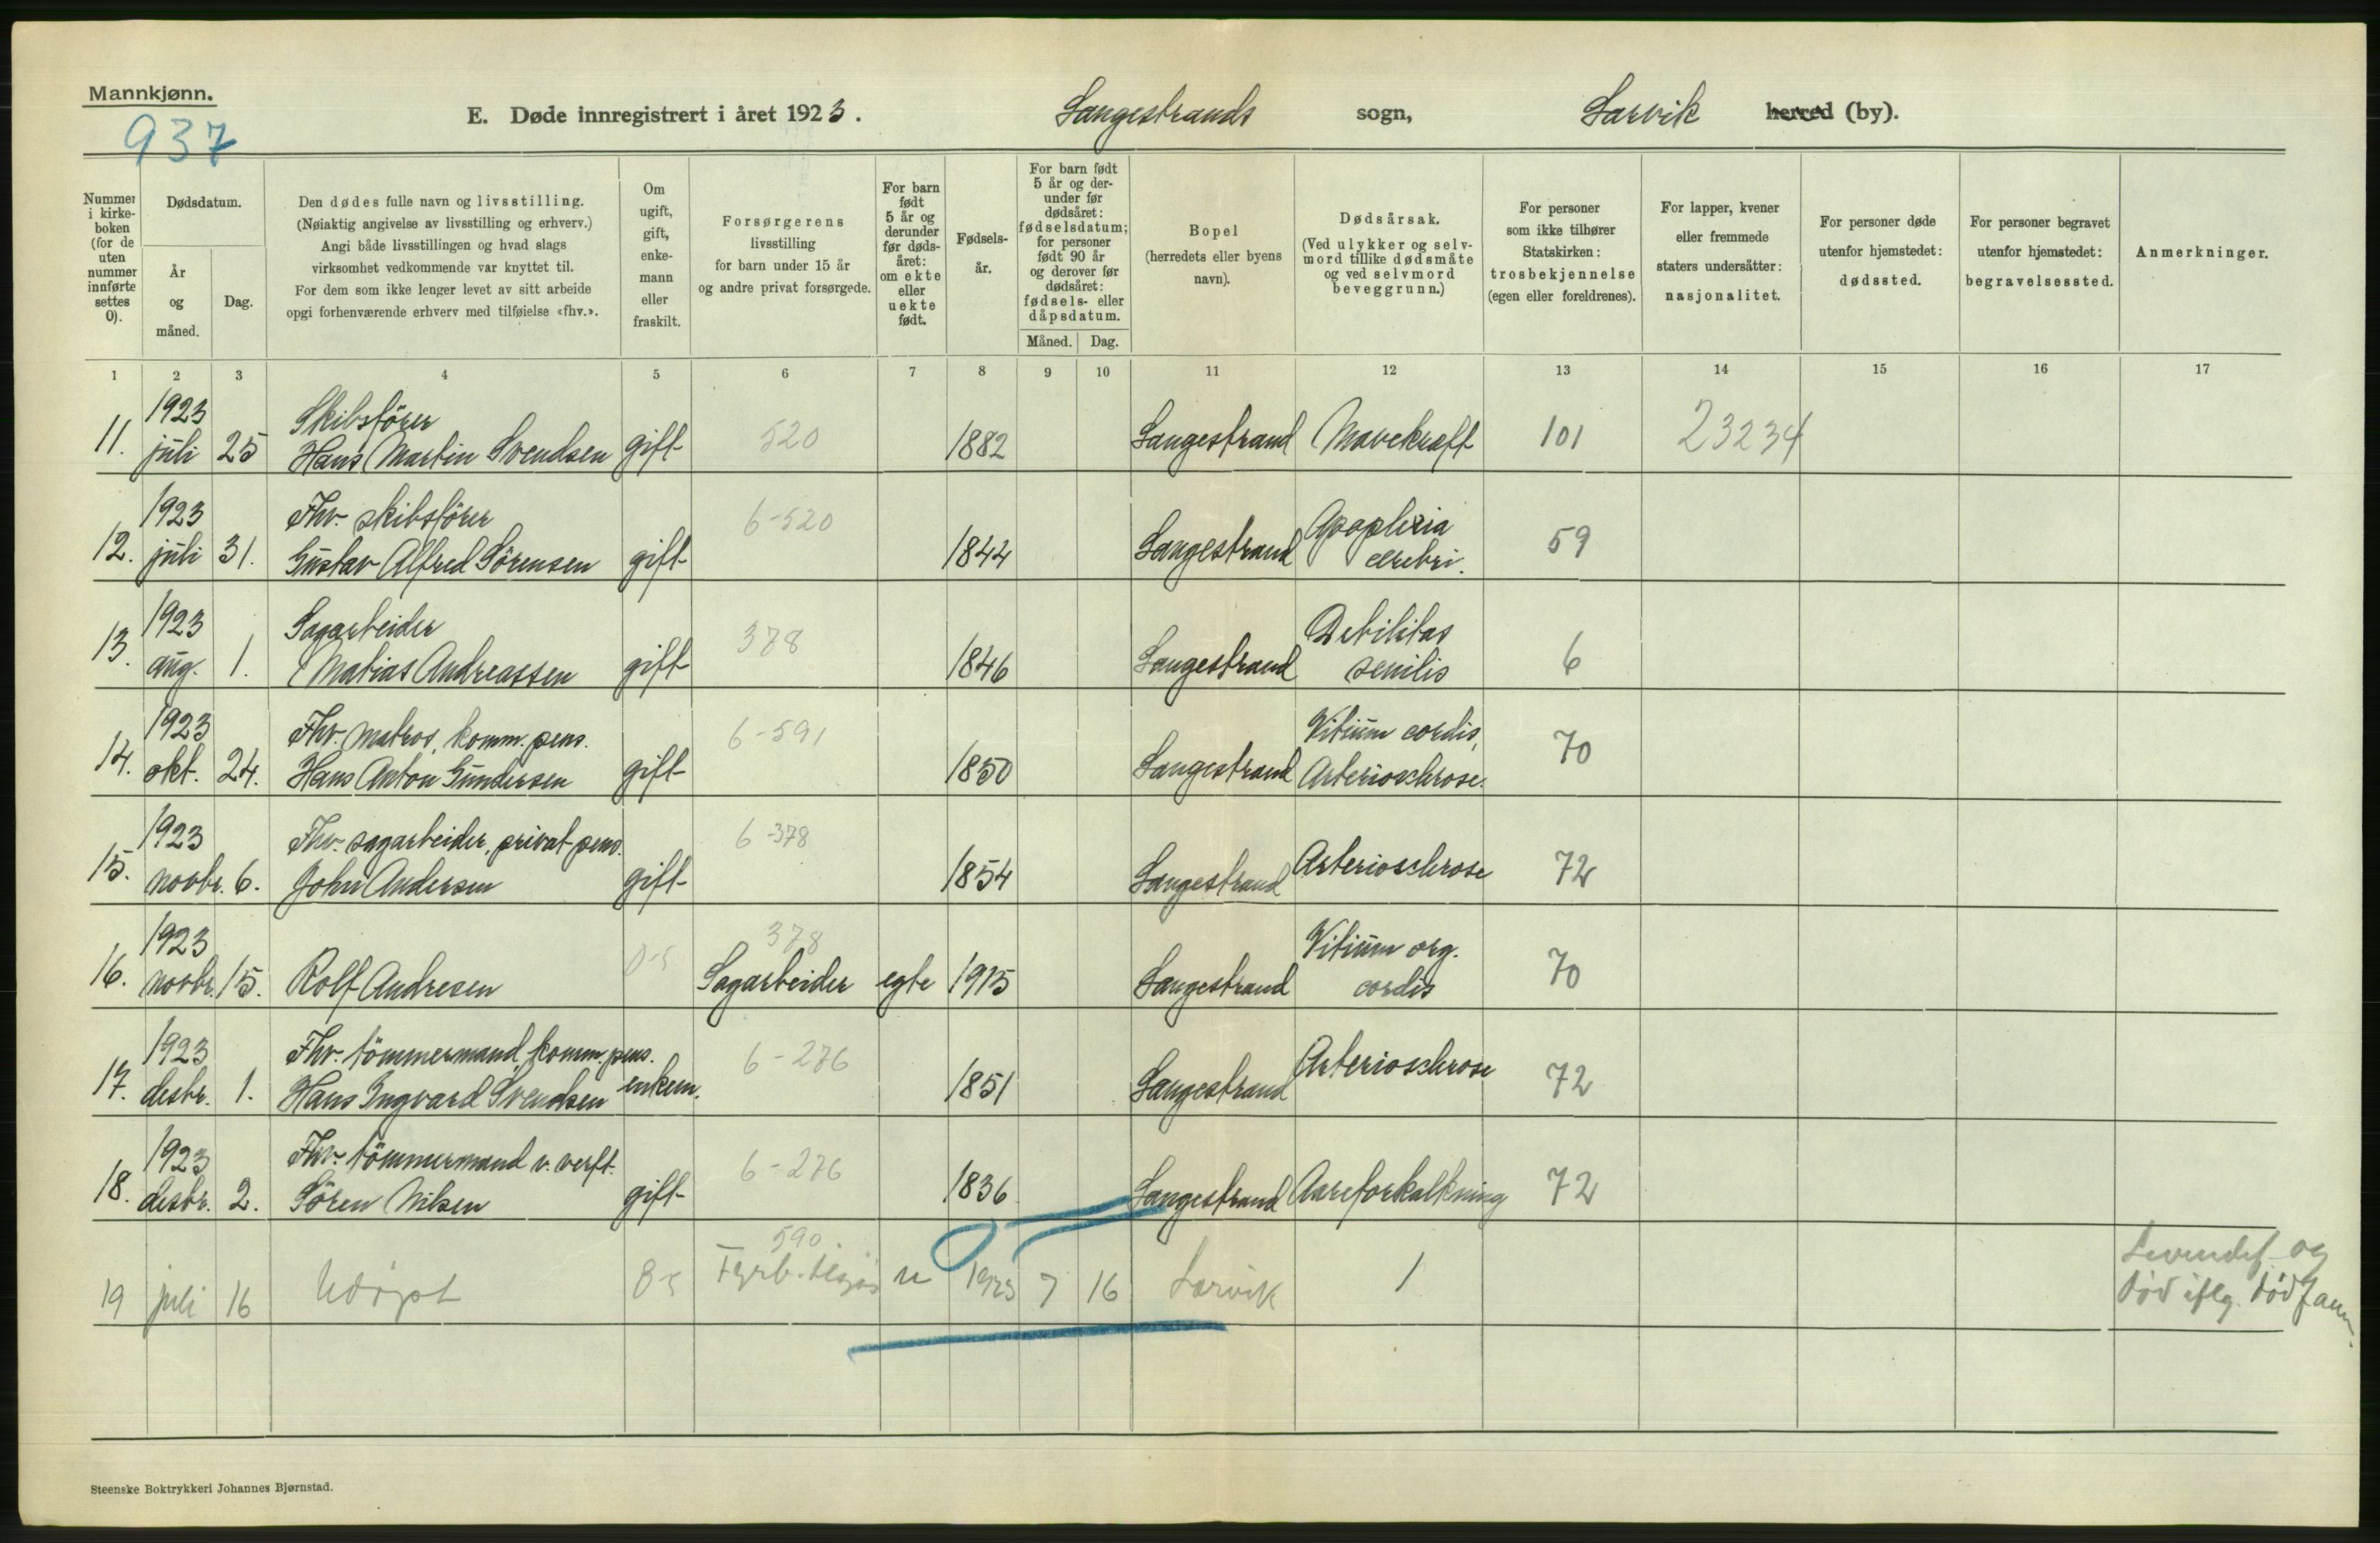 Mannkjønn.
937
E. Døde innregistrert i året 1923.
Langestrands sogn, Larvik herred (by).
Nummer i kirkeboken (for de uten nummer innførte settes 0).
Dødsdatum.
År og måned.
Dag.
Den dødes fulle navn og livsstilling.
(Nøiaktig angivelse av livsstilling og erhverv.)
Angi både livsstillingen og hvad slags
virksomhet vedkommende var knyttet til.
For dem som ikke lenger levet av sitt arbeide
opgi forhenværende erhverv med tilføielse «fhv.».
Om ugift, gift, enkemann eller fraskilt.
Forsørgerens
livsstilling
for barn under 15 år
og andre privat forsørgede.
For barn født 5 år og derunder før dødsåret: om ekte eller uekte født.
Fødselsår.
For barn født 5 år og derunder før dødsåret: fødselsdatum; for personer født 90 år og derover før dødsåret: fødsels- eller dåpsdatum.
Måned. Dag.
Bopel
(herredets eller byens
navn).
Dødsårsak.
(Ved ulykker og selvmord tillike dødsmåte og ved selvmord beveggrunn.)
For personer
som ikke tilhører
Statskirken:
trosbekjennelse
(egen eller foreldrenes).
For lapper, kvener
eller fremmede
staters undersåtter:
nasjonalitet.
For personer døde
utenfor hjemstedet:
dødssted.
For personer begravet
utenfor hjemstedet:
begravelsessted.
Anmerkninger.
1 2 3 4 5 6 7 8 9 10 11 12 13 14 15 16 17
1923 Skibsförer
11. juli 25 Hans Martin Svendsen gift 520 1882 Langestrand Mavekræft 101 23234
1923 Fhv. skibsförer 6-520 Apoplexia
12. juli 31. Gustav Alfred Sörensen gift 1844 Langestrand cerebri. 59
1923 Sagarbeider 378 Debilitas
13. aug. 1. Matias Andreassen gift 1846 Langestrand senilis 6
1923 Fhv. matros, komm. pens. 6-591 Vitium cordis,
14. okt. 24. Hans Anton Gundersen gift 1850 Langestrand Arteriosclerose. 70
1923 Fhv. sagarbeider, privat pens. 6-378
15. novbr. 6. John Andersen gift 1854 Langestrand Arteriosclerose 72
1923 378 Vitium org.
16. novbr. 15. Rolf Andresen Sagarbeider egte 1915 Langestrand cordis 70
1923 Fhv. tömmermand, komm. pens. 6-276
17. desbr. 1. Hans Ingvard Svendsen enkem. 1851 Langestrand Arteriosclerose 72
1923 Fhv. tömmermand v. verft. 6-276
18. desbr. 2. Sören Nilsen gift 1836 Langestrand Aareforkalkning 72
590 Levendef. og
19 juli 16 Udöpt u 1923 7 16 Larvik 1 död iflg.
Steenske Boktrykkeri Johannes Bjørnstad.